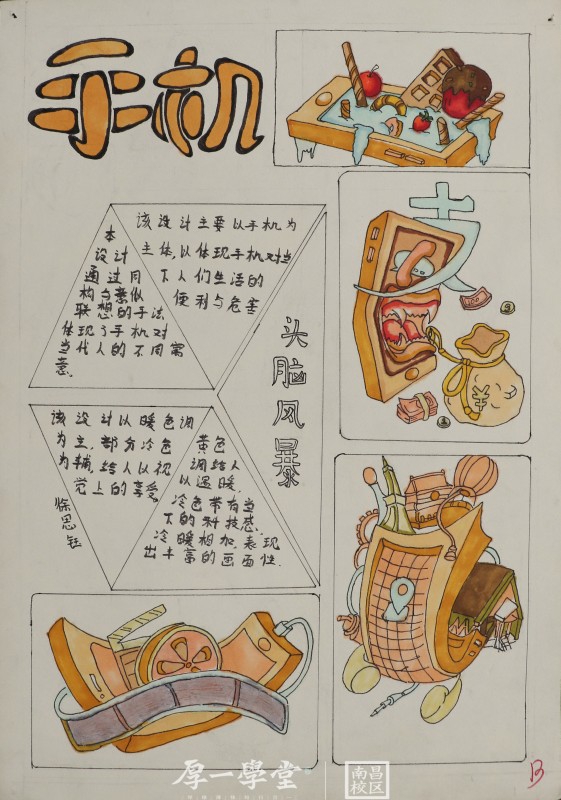 手机
该设计主要以手机为
主体,以体现手机对当
下人们生活的
便利与危害
本
设计
通过同
构与意似
联想的手法
体现了手机对
当代人的不同寓
意.
头脑风暴
支
¥
该设计以暖色调
为主,部分冷色
为辅,给人以视
觉上的享受.
黄色
调给人
以温暖,
冷色带有当
下的科技感.
冷暖相加,表现
出丰富的画面性.
徐思钰
B
厚一學堂
南昌
校区